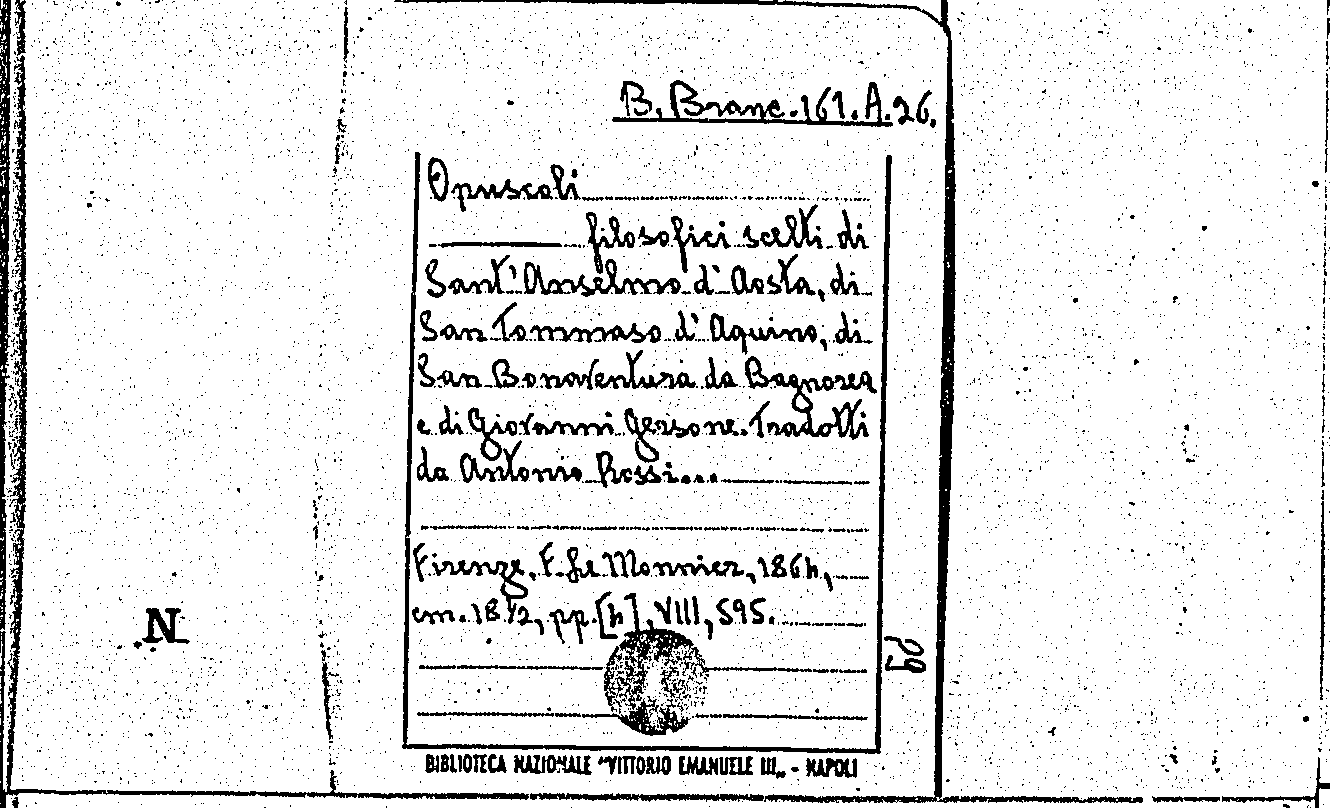 B. Branc. 161. A. 26.
Opuscoli
filosofici scelti di
Sant' Anselmo d' Aosta, di
San Tommaso d' Aquino, di
San Bonaventura da Bagnorea
e di Giovanni Gersone. Tradotti
da Antonio Rossi...
Firenze, F. Le Monnier, 1864,
cm. 18 1/2, pp. [4], VIII, 595.
N
BIBLIOTECA NAZIONALE "VITTORIO EMANUELE III„ - NAPOLI